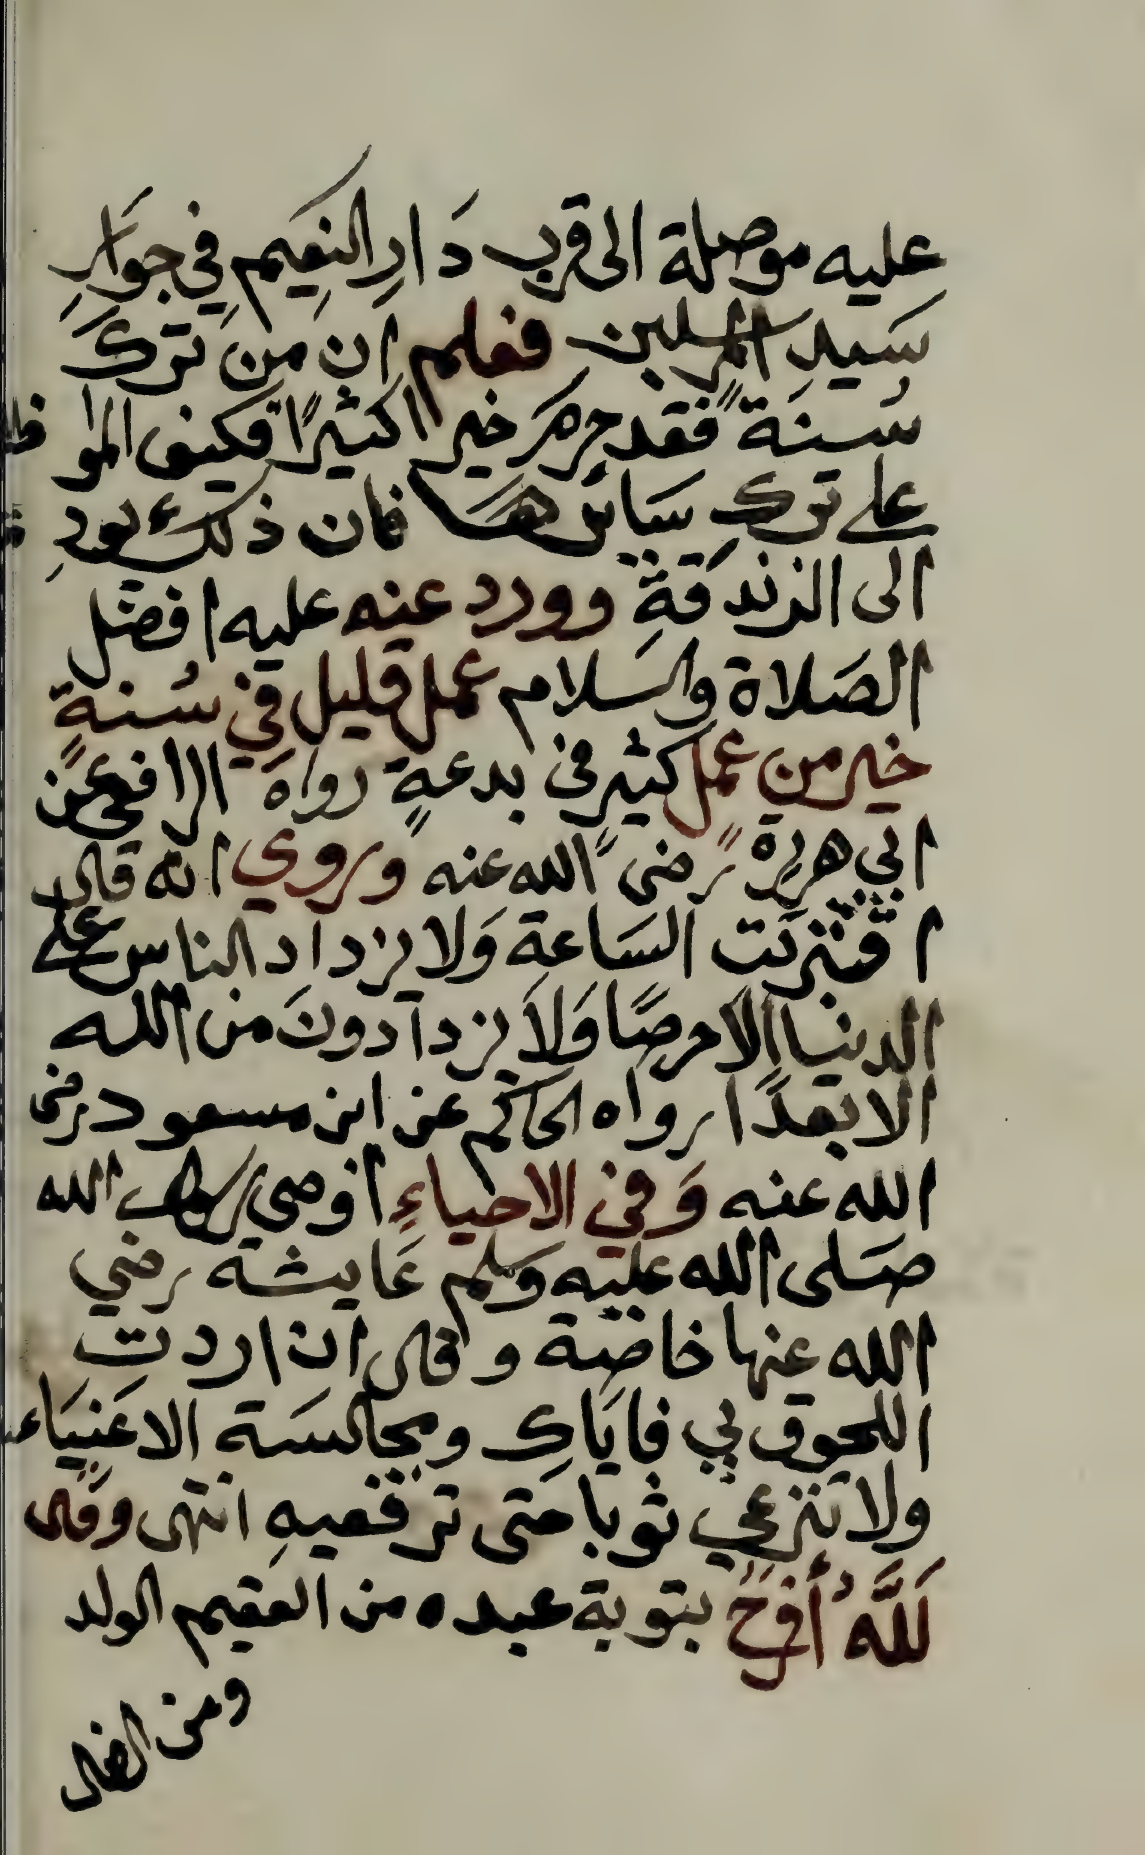 عليه موصلة الى قرب دَارِ النعِيم فِي جوَارِ
سَيدِ المرسلين فعلم ان من تركَ
سُنةً فقد حرمَ خيرا كثيرًا فكيف المواظبة
على تركِ سَائرهَا فان ذلك يودِ
الى الزندقةِ وورد عنه عليه افضل
الصَلاة والسَلام عمل قليل في سُنةٍ
خير من عمل كثير في بدعةٍ رواهَ الرافعي عن
ابي هريرة رضى الله عنه وروي انه قال
اقتربَت السَاعة وَلا يزداد الناس على
الدنيا الا حرصًا وَلَا يزدادونَ من الله
الا بعدًا رواه الحاكم عن ابن مسعود رضى
الله عنه وَفي الاحياءِ اوصي رسول الله
صَلى الله عليه وَسلم عَايشة رضي
الله عنها خاصّة وقال ان اردتِ
اللحوق بي فايَاكِ ومجالسَة الاغنيَاء
ولا تنزعي ثوبا حَتى ترقعيهِ انتهى وقال
لَلَّهُ أفرَحُ بتوبة عبده من العقيم الولد
ومن الضال